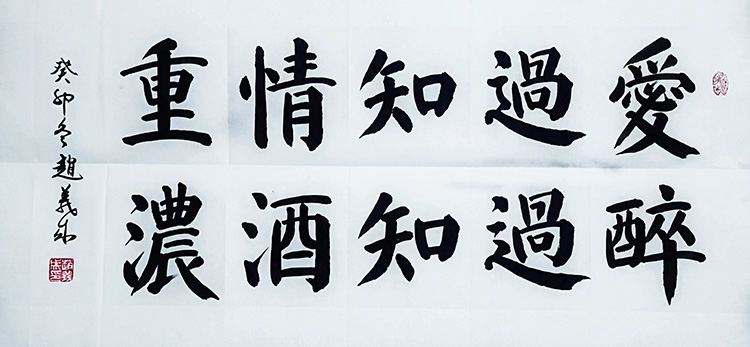 愛過知情重
醉過知酒濃
癸卯冬趙義